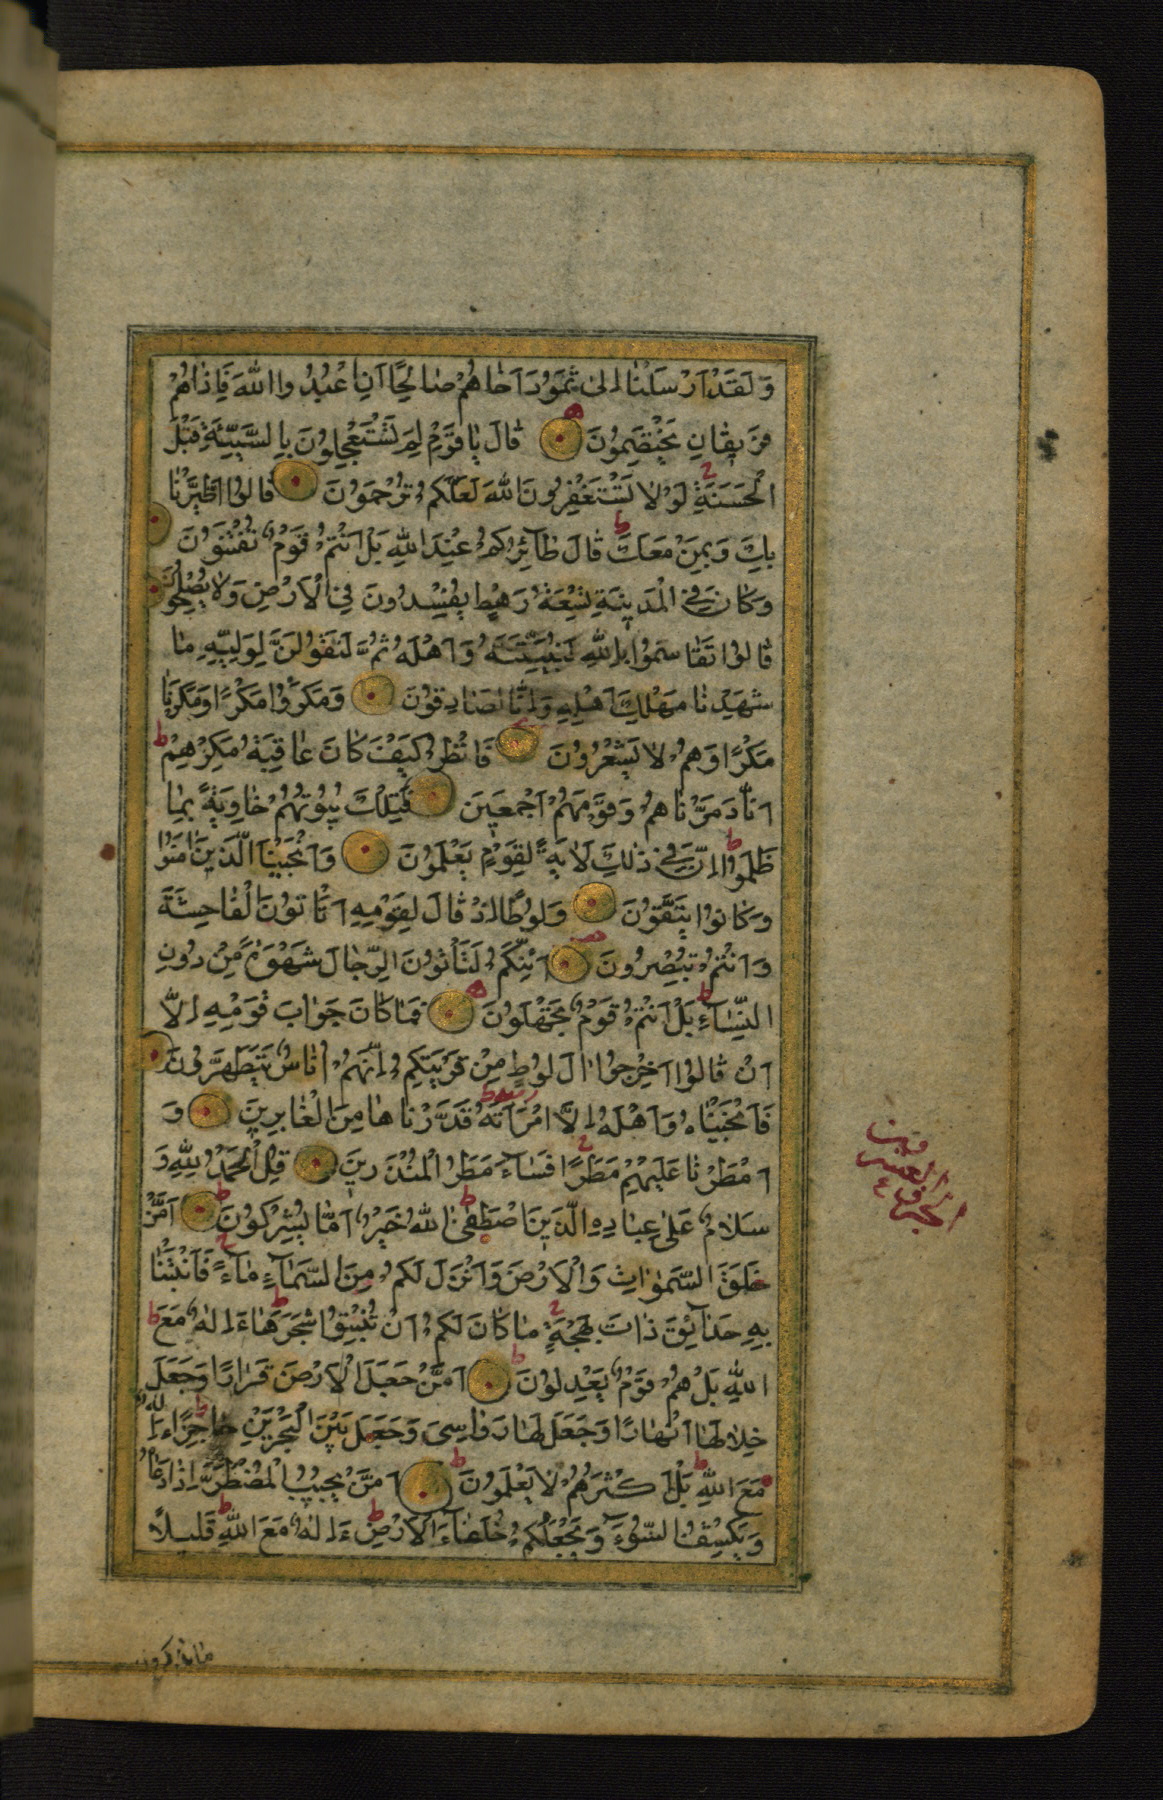 وَلَقَدْ اَرْسَلْنَا اِلٰى ثَمُودَ اَخَاهُمْ صَالِحًا اَنِ اعْبُدُوا اللهَ فَاِذَاهُمْ
فَرِيقَانِ يَخْتَصِمُونَ قَالَ يَا قَوْمِ لِمَ تَسْتَعْجِلُونَ بِالسَّيِّئَةِ قَبْلَ
الْحَسَنَةِ لَوْلَا تَسْتَغْفِرُونَ اللهَ لَعَلَّكُمْ تُرْحَمُونَ قَالُوا اطَّيَّرْنَا
بِكَ وَبِمَنْ مَعَكَ قَالَ طَآئِرُكُمْ عِنْدَ اللهِ بَلْ اَنْتُمْ قَوْمٌ تُفْتَنُونَ
وَكَانَ فِي الْمَدِينَةِ تِسْعَةُ رَهْطٍ يُفْسِدُونَ فِي الْاَرْضِ وَلَا يُصْلِحُونَ
قَالُوا تَقَاسَمُوا بِاللهِ لَنُبَيِّتَنَّهُ وَاَهْلَهُ ثُمَّ لَنَقُولَنَّ لِوَلِيِّهِ مَا
شَهِدْنَا مَهْلِكَ اَهْلِهِ وَاِنَّا لَصَادِقُونَ وَمَكَرُوا مَكْرًا وَمَكَرْنَا
مَكْرًا وَهُمْ لَا يَشْعُرُونَ فَانْظُرْ كَيْفَ كَانَ عَاقِبَةُ مَكْرِهِمْ
اَنَّا دَمَّرْنَاهُمْ وَقَوْمَهُمْ اَجْمَعِينَ فَتِلْكَ بُيُوتُهُمْ خَاوِيَةً بِمَا
ظَلَمُوا اِنَّ فِي ذٰلِكَ لَاٰيَةً لِقَوْمٍ يَعْلَمُونَ وَاَنْجَيْنَا الَّذِينَ اٰمَنُوا
وَكَانُوا يَتَّقُونَ وَلُوطًا اِذْ قَالَ لِقَوْمِهِ اَتَاْتُونَ الْفَاحِشَةَ
وَاَنْتُمْ تُبْصِرُونَ اَئِنَّكُمْ لَتَأْتُونَ الرِّجَالَ شَهْوَةً مِنْ دُونِ
النِّسَآءِ بَلْ اَنْتُمْ قَوْمٌ تَجْهَلُونَ فَمَا كَانَ جَوَابَ قَوْمِهِ اِلَّا
اَنْ قَالُوا اَخْرِجُوا اٰلَ لُوطٍ مِنْ قَرْيَتِكُمْ اِنَّهُمْ اُنَاسٌ يَتَطَهَّرُونَ
فَاَنْجَيْنَاهُ وَاَهْلَهُ اِلَّا امْرَاَتَهُ قَدَّرْنَاهَا مِنَ الْغَابِرِينَ وَ
اَمْطَرْنَا عَلَيْهِمْ مَطَرًا فَسَآءَ مَطَرُ الْمُنْذَرِينَ قُلِ الْحَمْدُ لِلّٰهِ وَ
سَلَامٌ عَلٰى عِبَادِهِ الَّذِينَ اصْطَفٰى اللهُ خَيْرٌ اَمَّا يُشْرِكُونَ اَمَّنْ
خَلَقَ السَّمٰوَاتِ وَالْاَرْضَ وَاَنْزَلَ لَكُمْ مِنَ السَّمَآءِ مَآءً فَاَنْبَتْنَا
بِهِ حَدَآئِقَ ذَاتَ بَهْجَةٍ مَا كَانَ لَكُمْ اَنْ تُنْبِتُوا شَجَرَهَا ءَاِلٰهٌ مَعَ
اللهِ بَلْ هُمْ قَوْمٌ يَعْدِلُونَ اَمَّنْ جَعَلَ الْاَرْضَ قَرَارًا وَجَعَلَ
خِلَالَهَا اَنْهَارًا وَجَعَلَ لَهَا رَوَاسِيَ وَجَعَلَ بَيْنَ الْبَحْرَيْنِ حَاجِزًا ءَاِلٰهٌ
مَعَ اللهِ بَلْ اَكْثَرُهُمْ لَا يَعْلَمُونَ اَمَّنْ يُجِيبُ الْمُضْطَرَّ اِذَا دَعَاهُ
وَيَكْشِفُ السُّوٓءَ وَيَجْعَلُكُمْ خُلَفَآءَ الْاَرْضِ ءَاِلٰهٌ مَعَ اللهِ قَلِيلًا
مَا تَذَكَّرُونَ